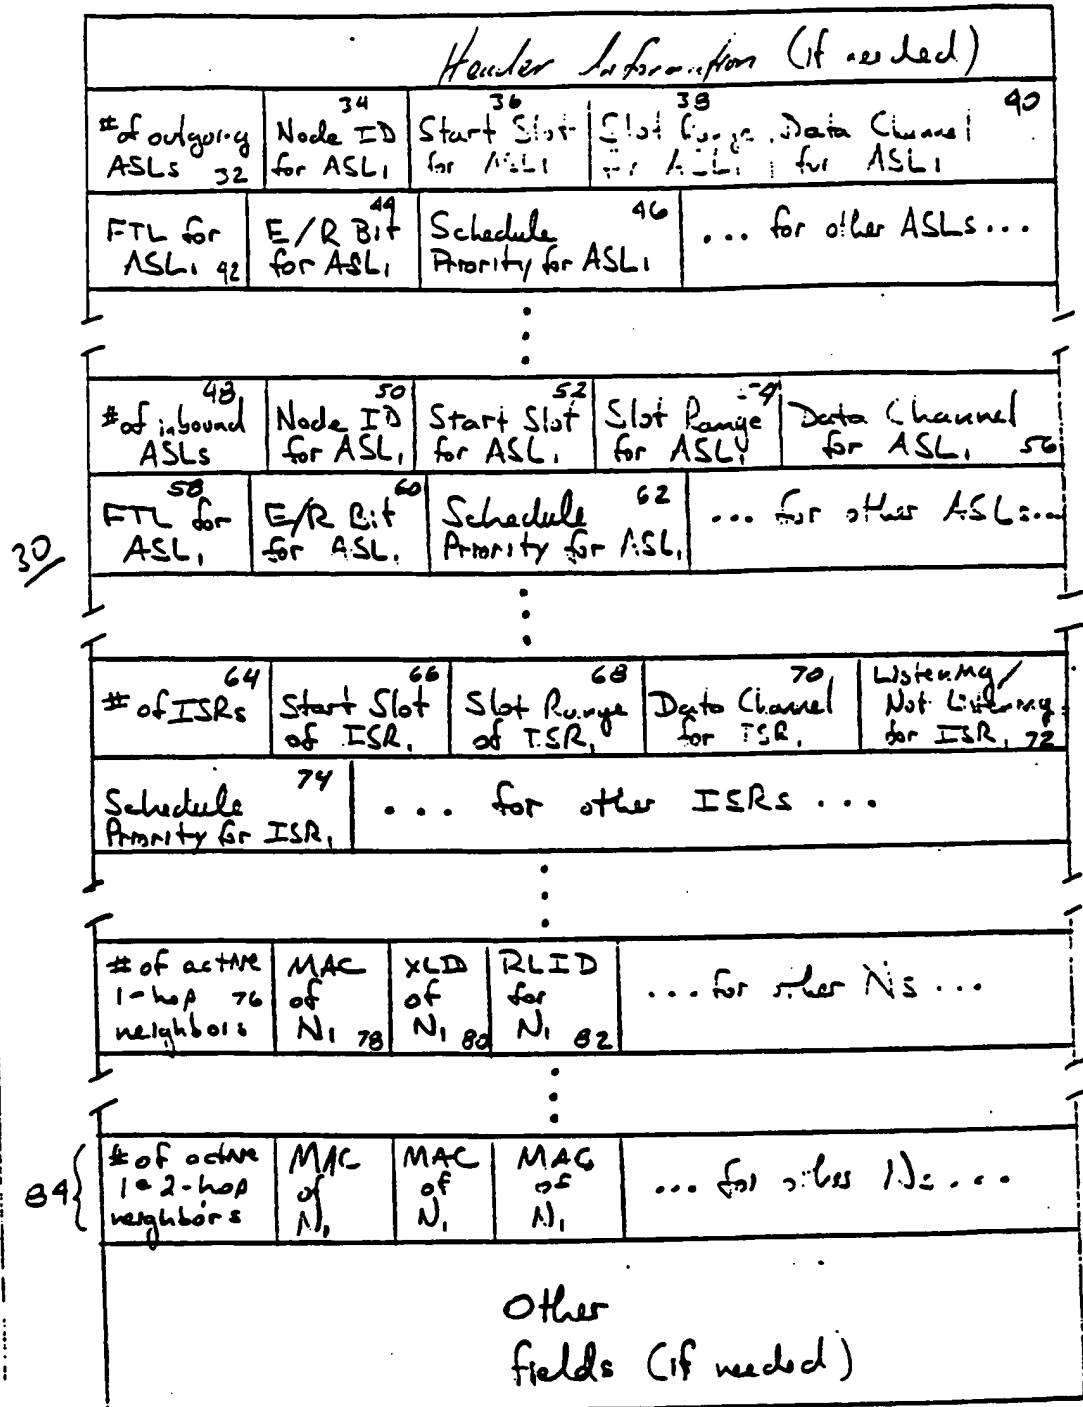 Header Information (if needed)
# of outgoing ASLs 32 | Node ID for ASL1 34 | Start Slot for ASL1 36 | Slot Range for ASL1 38 | Data Channel for ASL1 40
FTL for ASL1 42 | E/R Bit for ASL1 44 | Schedule Priority for ASL1 46 | ... for other ASLs ...
# of inbound ASLs 48 | Node ID for ASL1 50 | Start Slot for ASL1 52 | Slot Range for ASL1 54 | Data Channel for ASL1 56
FTL for ASL1 58 | E/R Bit for ASL1 60 | Schedule Priority for ASL1 62 | ... for other ASLs ...
30
# of ISRs 64 | Start Slot of ISR1 66 | Slot Range of ISR1 68 | Data Channel for ISR1 70 | Listening/ Not Listening for ISR1 72
Schedule Priority for ISR1 74 | ... for other ISRs ...
# of active 1-hop neighbors 76 | MAC of N1 78 | XLID of N1 80 | RLID for N1 82 | ... for other Ns ...
84 { # of active 1@2-hop neighbors | MAC of N1 | MAC of N1 | MAC of N1 | ... for other Ns ...
Other
fields (if needed)